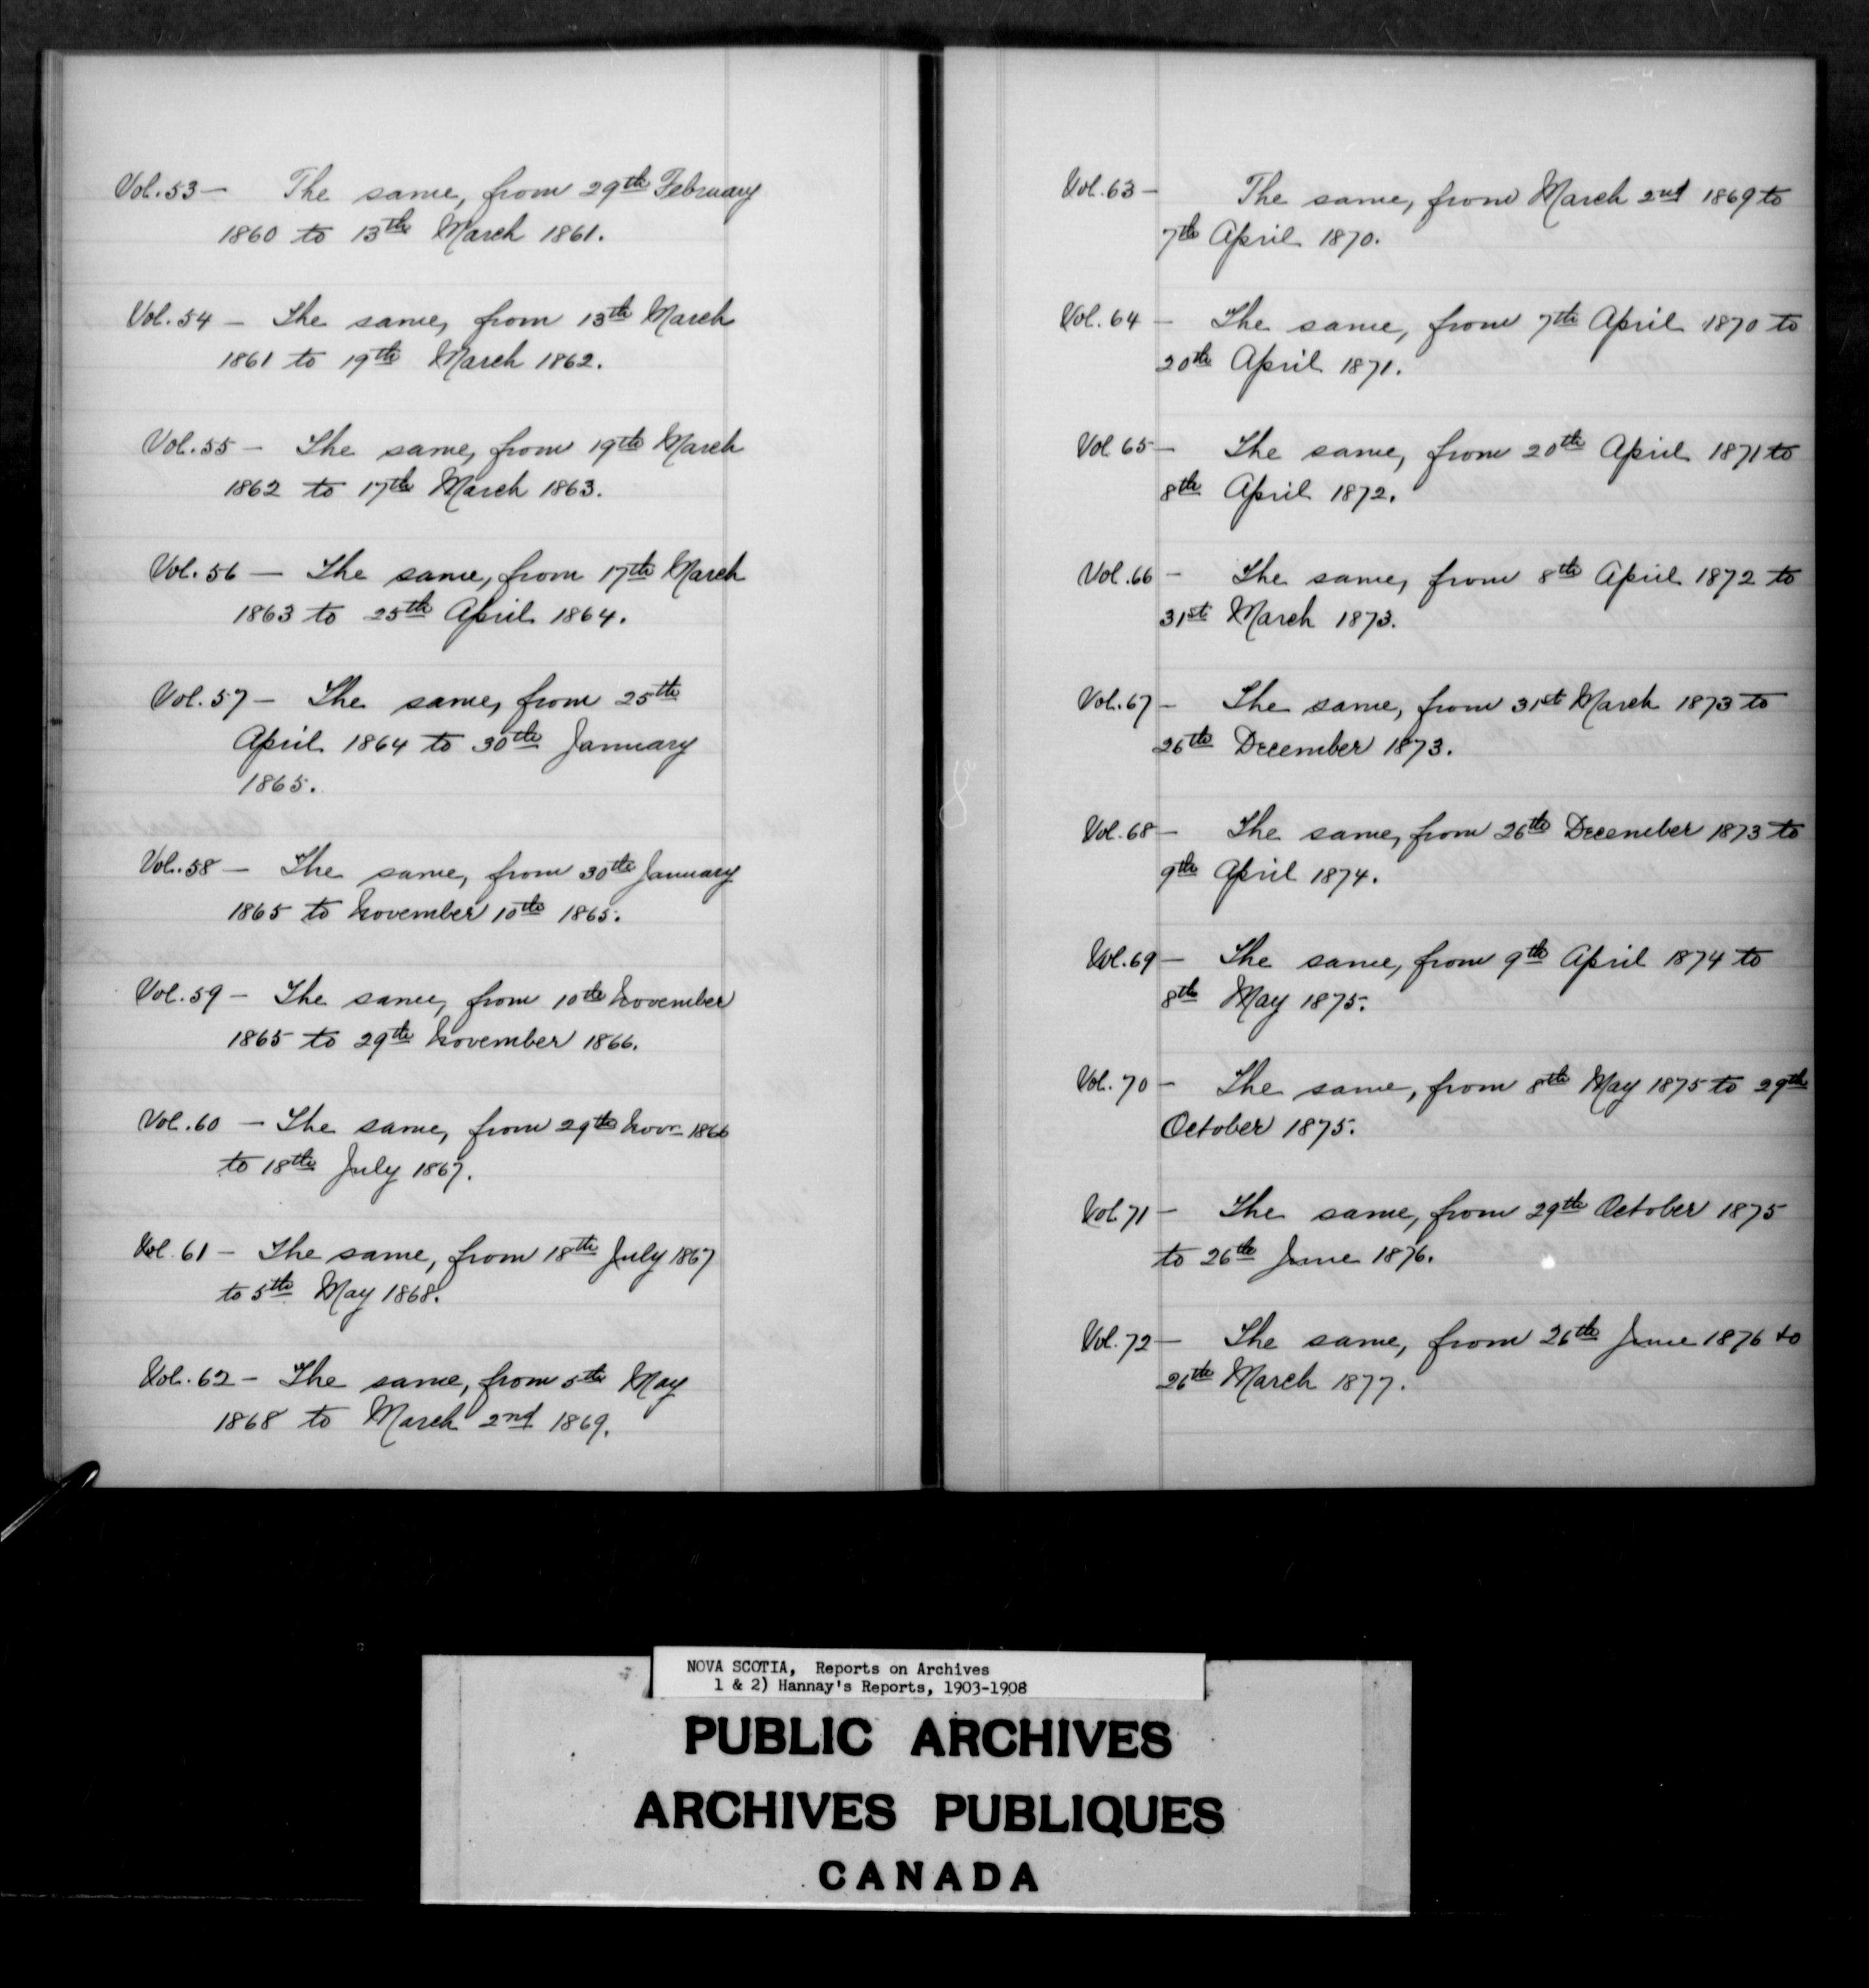 Vol. 53 — The same, from 29th February
1860 to 13th March 1861.
Vol. 54 — The same, from 13th March
1861 to 19th March 1862.
Vol. 55 — The same, from 19th March
1862 to 17th March 1863.
Vol. 56 — The same, from 17th March
1863 to 25th April 1864.
Vol. 57 — The same, from 25th
April 1864 to 30th January
1865.
Vol. 58 — The same, from 30th January
1865 to November 10th 1865.
Vol. 59 — The same, from 10th November
1865 to 29th November 1866.
Vol. 60 — The same, from 29th Novr 1866
to 18th July 1867.
Vol. 61 — The same, from 18th July 1867
to 5th May 1868.
Vol. 62 — The same, from 5th May
1868 to March 2nd 1869.
Vol. 63 — The same, from March 2nd 1869 to
7th April 1870.
Vol. 64 — The same, from 7th April 1870 to
20th April 1871.
Vol 65 — The same, from 20th April 1871 to
8th April 1872.
Vol. 66 — The same, from 8th April 1872 to
31st March 1873.
Vol. 67 — The same, from 31st March 1873 to
26th December 1873.
Vol. 68 — The same, from 26th December 1873 to
9th April 1874.
Vol. 69 — The same, from 9th April 1874 to
8th May 1875.
Vol. 70 — The same, from 8th May 1875 to 29th
October 1875.
Vol. 71 — The same, from 29th October 1875
to 26th June 1876.
Vol. 72 — The same, from 26th June 1876 to
26th March 1877.
NOVA SCOTIA, Reports on Archives
1 & 2) Hannay's Reports, 1903-1908
PUBLIC ARCHIVES
ARCHIVES PUBLIQUES
CANADA